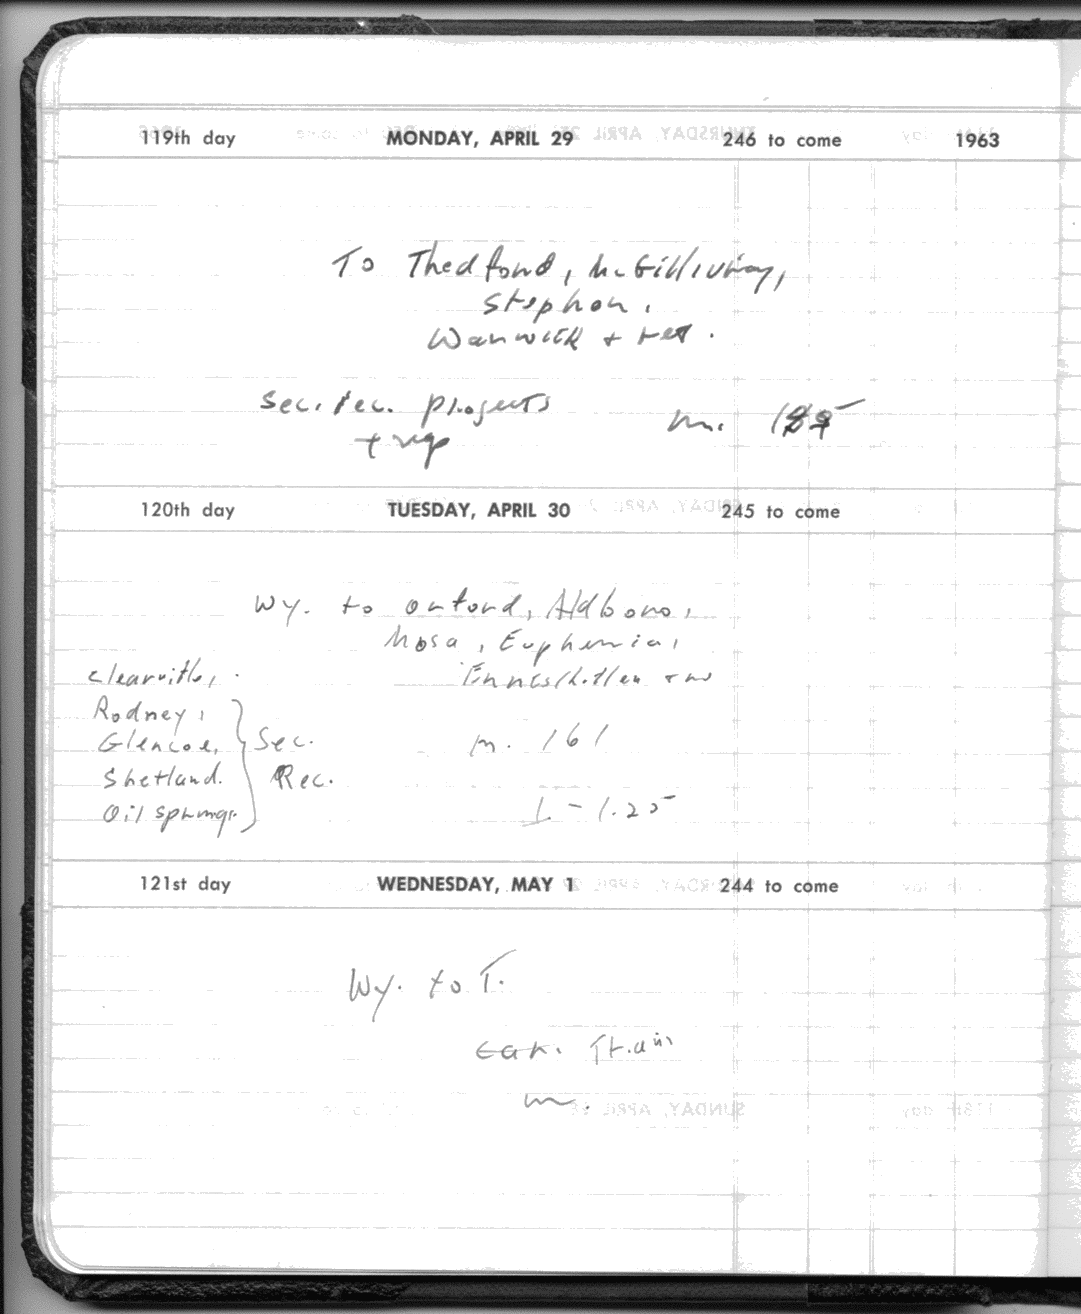 119th day MONDAY, APRIL 29 246 to come 1963
To Thedford, McGillivray,
Stephen,
Warwick + ret.
Sec. rec. projects
+ rep
m.
120th day TUESDAY, APRIL 30 245 to come
Wy. to Orford, Aldboro,
Mosa, Euphemia,
Enniskillen + ret
Clearville,
Rodney,
Glencoe, Sec.
Shetland. Rec.
Oil Springs.
m. 161
L - 1.25
121st day WEDNESDAY, MAY 1 244 to come
Wy. to T.
Car. Train
m.